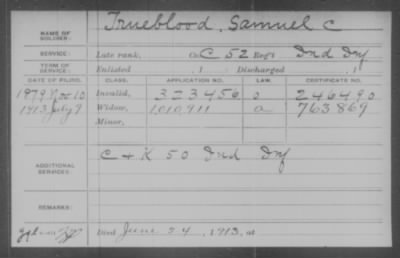 NAME OF SOLDIER: Trueblood, Samuel C
SERVICE: Late rank, Co. C 52 Reg't Ind Inf
TERM OF SERVICE: Enlisted , 1 Discharged , 1
DATE OF FILING. CLASS. APPLICATION NO. LAW. CERTIFICATE NO.
1879 Nov 10 Invalid, 323456 246490
1913 July 9 Widow, 1,010,911 a 763869
Minor,
ADDITIONAL SERVICES: C + K 50 Ind Inf
REMARKS:
Died June 24, 1913, at